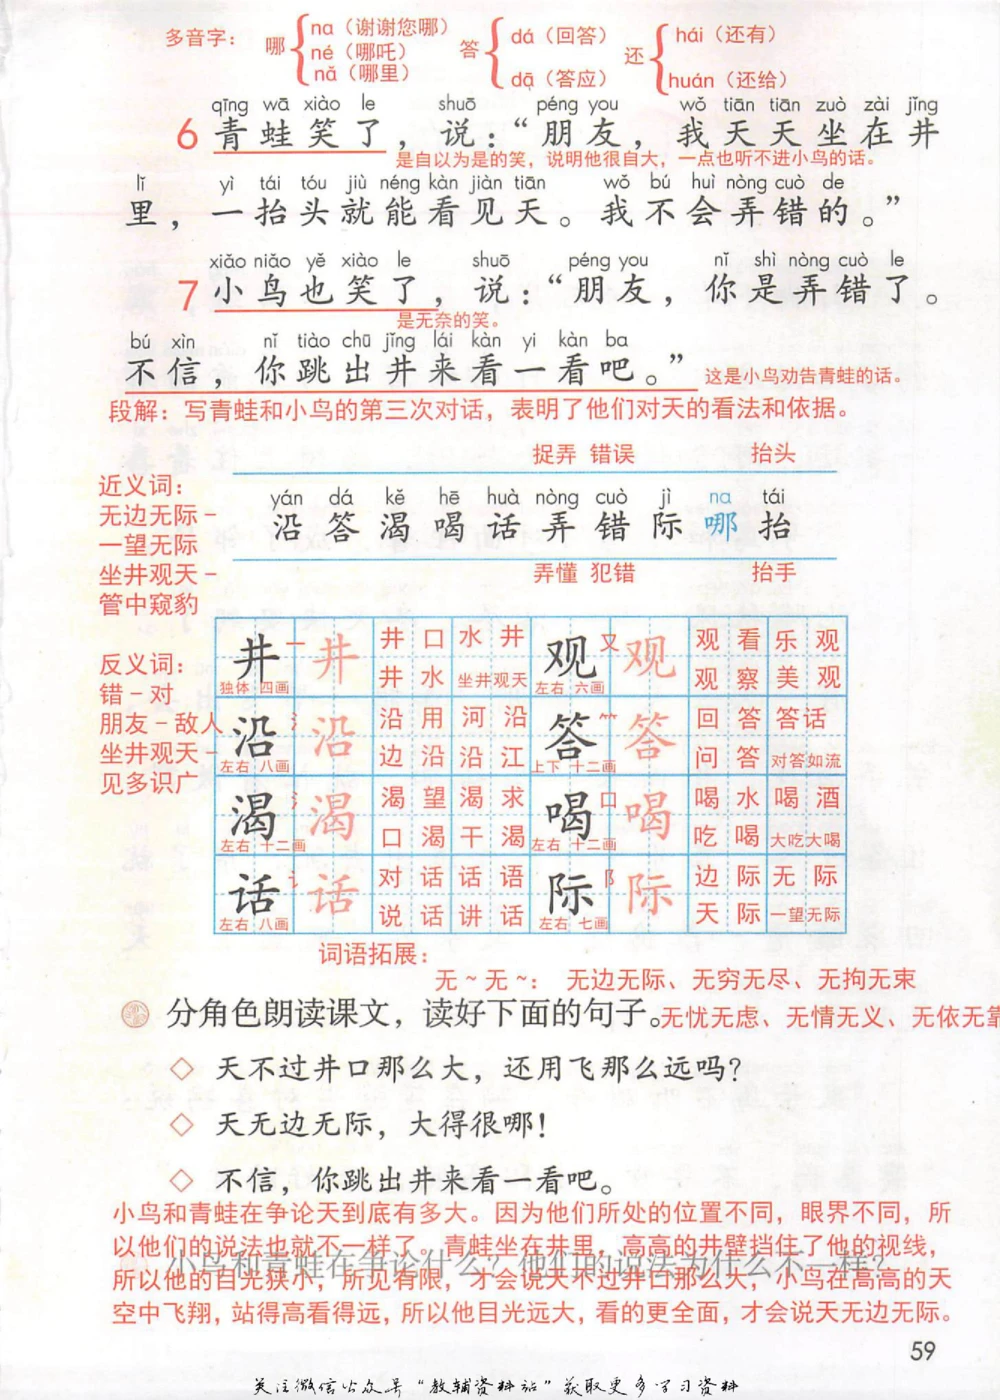 多音字：哪{na（谢谢您哪） né（哪吒） nǎ（哪里） 答{dá（回答） dā（答应） 还{hái（还有） huán（还给）
qīng wā xiào le shuō péng you wǒ tiān tiān zuò zài jǐng
6 青蛙笑了，说：“朋友，我天天坐在井
是自以为是的笑，说明他很自大，一点也听不进小鸟的话。
lǐ yì tái tóu jiù néng kàn jiàn tiān wǒ bú huì nòng cuò de
里，一抬头就能看见天。我不会弄错的。”
xiǎo niǎo yě xiào le shuō péng you nǐ shì nòng cuò le
7 小鸟也笑了，说：“朋友，你是弄错了。
是无奈的笑。
bú xìn nǐ tiào chū jǐng lái kàn yi kàn ba
不信，你跳出井来看一看吧。”
这是小鸟劝告青蛙的话。
段解：写青蛙和小鸟的第三次对话，表明了他们对天的看法和依据。
捉弄 错误 抬头
yán dá kě hē huà nòng cuò jì na tái
沿 答 渴 喝 话 弄 错 际 哪 抬
弄懂 犯错 抬手
近义词：
无边无际－
一望无际
坐井观天－
管中窥豹
反义词：
错－对
朋友－敌人
坐井观天－
见多识广
井 一 井 井口 水井 观 又 观 观看 乐观
独体 四画 井水 坐井观天 左右 六画 观察 美观
沿 氵 沿 沿用 河沿 答 ⺮ 答 回答 答话
左右 八画 边沿 沿江 上下 十二画 问答 对答如流
渴 氵 渴 渴望 渴求 喝 口 喝 喝水 喝酒
左右 十二画 口渴 干渴 左右 十二画 吃喝 大吃大喝
话 讠 话 对话 话语 际 阝 际 边际 无际
左右 八画 说话 讲话 左右 七画 天际 一望无际
词语拓展：
无～无～： 无边无际、无穷无尽、无拘无束
无忧无虑、无情无义、无依无靠
分角色朗读课文，读好下面的句子。
◇ 天不过井口那么大，还用飞那么远吗？
◇ 天无边无际，大得很哪！
◇ 不信，你跳出井来看一看吧。
小鸟和青蛙在争论什么？他们的说法为什么不一样？
小鸟和青蛙在争论天到底有多大。因为他们所处的位置不同，眼界不同，所
以他们的说法也就不一样了。青蛙坐在井里，高高的井壁挡住了他的视线，
所以他的目光狭小，所见有限，才会说天不过井口那么大；小鸟在高高的天
空中飞翔，站得高看得远，所以他目光远大，看的更全面，才会说天无边无际。
59
关注微信公众号“教辅资料站”获取更多学习资料